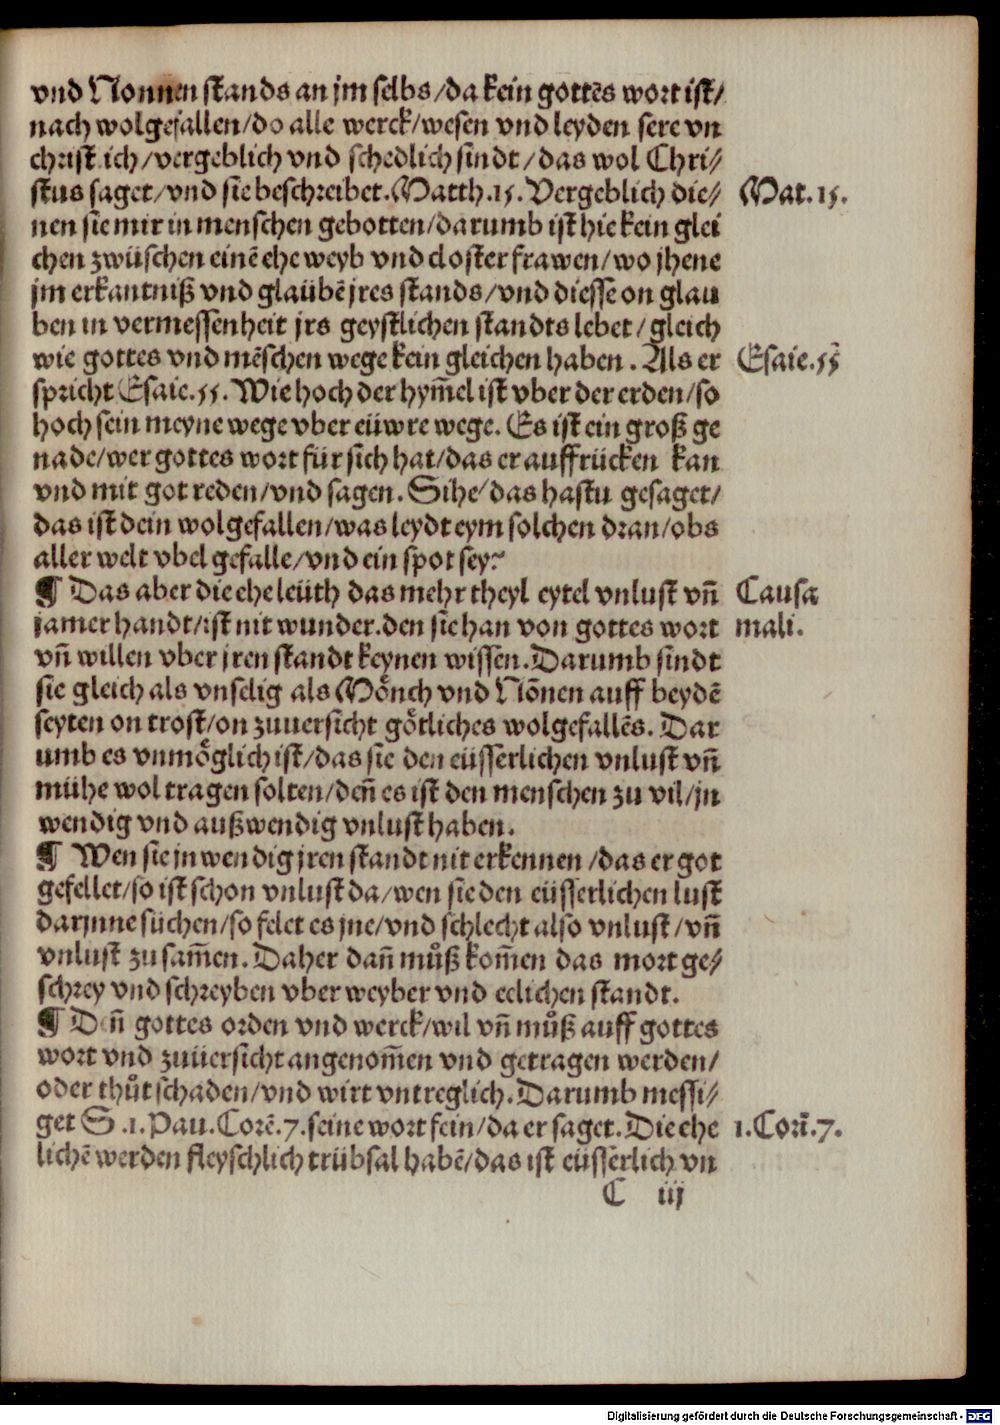 vnd Nonnen stands an jm selbs/da kein gottes wort ist/
nach wolgefallen/do alle werck/wesen vnd leyden sere vn
christ ich/vergeblich vnd schedlich sindt/das wol Chri⸗
stus saget/vnd sie beschreibet. Matth.15. Vergeblich die⸗
Mat.15.
nen sie mir in menschen gebotten/darumb ist hie kein glei
chen zwüschen einē ehe weyb vnd closter frawen/wo jhene
jm erkantniß vnd glaübē jres stands/vnd diesse on glau
ben in vermessenheit jrs geystlichen standts lebet/gleich
wie gottes vnd mēschen wege kein gleichen haben. Als er
Esaie.55
spricht Esaie.55. Wie hoch der hym̄el ist vber der erden/so
hoch sein meyne wege vber eüwre wege. Es ist ein groß ge
nade/wer gottes wort für sich hat/das er auffrücken kan
vnd mit got reden/vnd sagen. Sihe/das hastu gesaget/
das ist dein wolgefallen/was leydt eym solchen dran/obs
aller welt vbel gefalle/vnd ein spot sey?
¶ Das aber die ehe leüth das mehr theyl eytel vnlust vn̄
Causa
jamer handt/ist nit wunder.den sie han von gottes wort
mali.
vn̄ willen vber jren standt keynen wissen. Darumb sindt
sie gleich als vnselig als Mönch vnd Nōnen auff beydē
seyten on trost/on zuuersicht götliches wolgefallēs. Dar
umb es vnmöglich ist/das sie den eüsserlichen vnlust vn̄
mühe wol tragen solten/den̄ es ist den menschen zu vil/jn
wendig vnd außwendig vnlust haben.
¶ Wen sie jnwendig jren standt nit erkennen/das er got
gefellet/so ist schon vnlust da/wen sie den eüsserlichen lust
darjnne süchen/so felet es jne/vnd schlecht also vnlust/vn̄
vnlust zu sam̄en. Daher dan̄ můß kom̄en das mort ge⸗
schrey vnd schreyben vber weyber vnd eelichen standt.
¶ Den̄ gottes orden vnd werck/wil vn̄ můß auff gottes
wort vnd zuuersicht angenom̄en vnd getragen werden/
oder thůt schaden/vnd wirt vntreglich. Darumb messi⸗
get S .1. Pau. Corē.7.seine wort fein/da er saget. Die ehe
1.Corn̄.7.
lichē werden fleyschlich trübsal habē/das ist eüsserlich vn
C iij
Digitalisierung gefördert durch die Deutsche Forschungsgemeinschaft - DFG